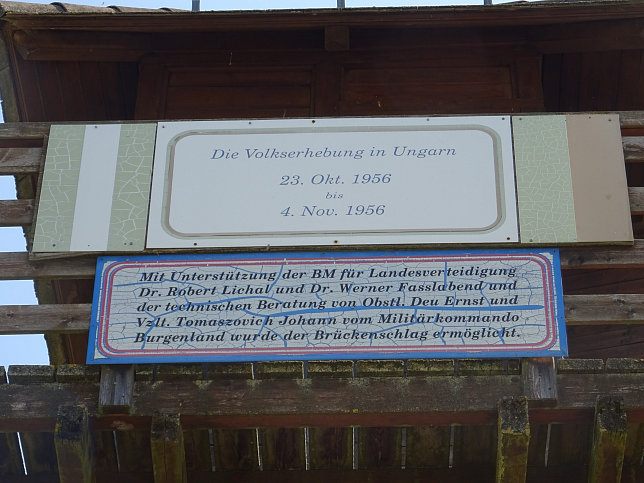 Die Volkserhebung in Ungarn
23. Okt. 1956
bis
4. Nov. 1956
Mit Unterstützung der BM für Landesverteidigung
Dr. Robert Lichal und Dr. Werner Fasslabend und
der technischen Beratung von Obstl. Deu Ernst und
Vzlt. Tomaszovich Johann vom Militärkommando
Burgenland wurde der Brückenschlag ermöglicht.